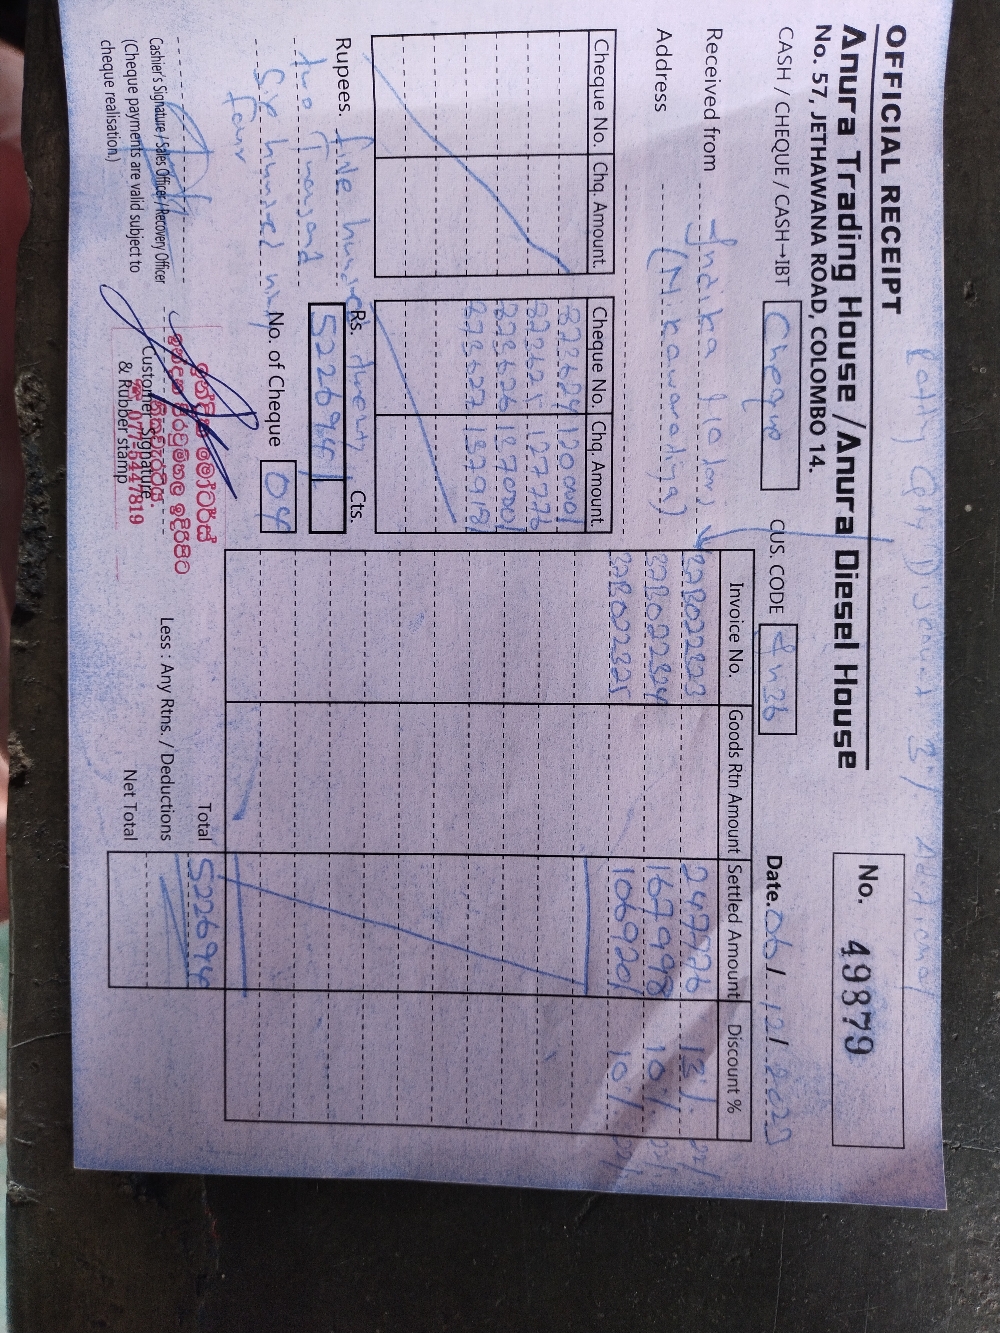 OFFICIAL RECEIPT
Anura Trading House / Anura Diesel House
No. 57, JETHAWANA ROAD, COLOMBO 14.
No. 49879
CASH / CHEQUE / CASH→IBT Cheque CUS. CODE Date. 06 / 12 /
Received from Indika Motors
Address (Nikawaratiya)
Cheque No. Chq. Amount. Cheque No. Chq. Amount.
120000/
127776
137918
Invoice No. Goods Rtn Amount Settled Amount Discount %
37B022323 247776 13%
37B022324 167998 10%
37B022325 106920/ 10%
Rupees. five hundred twenty
two thousand
six hundred ninty
four
Rs. 522694/ Cts.
No. of Cheque 04
Total 522694
Less : Any Rtns. / Deductions
Net Total
Cashier's Signature / Sales Officer / Recovery Officer
(Cheque payments are valid subject to
cheque realisation.)
Customer Signature
& Rubber stamp
☎ 077 5447819